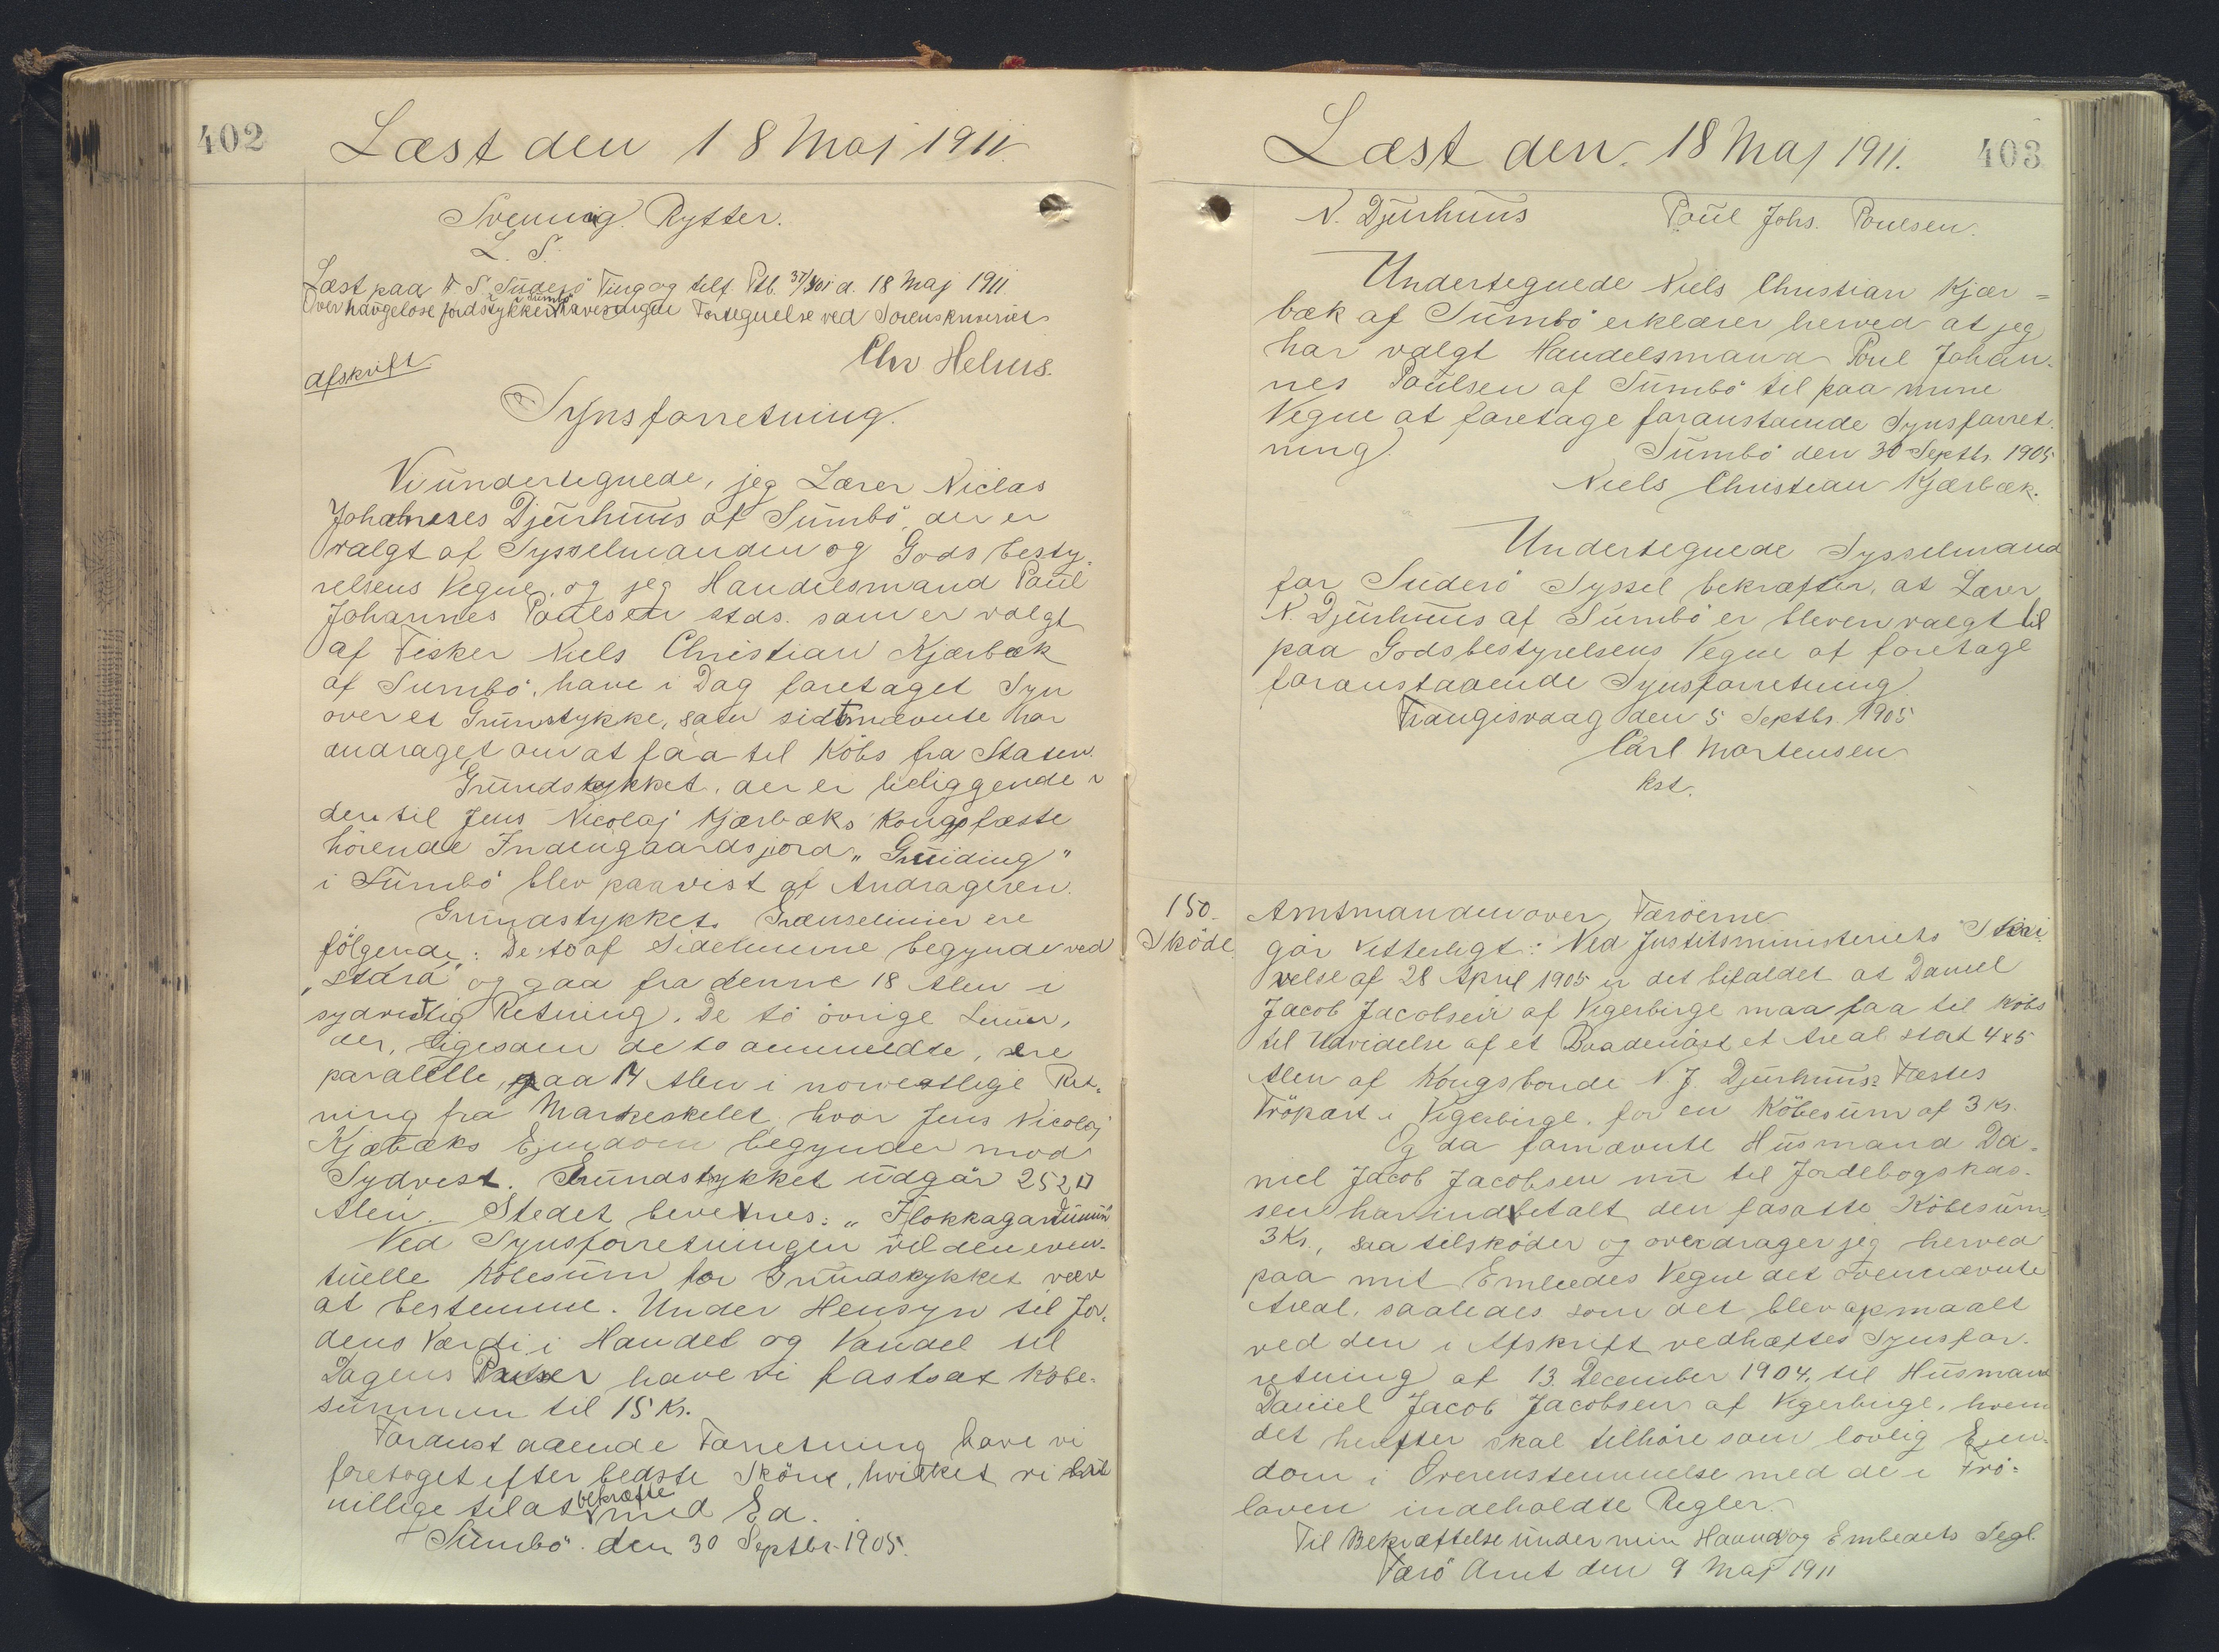 402
Læst den 18 Maj 1911.
Svenning Rytter.
L. S.
Læst paa F. S. Suderö Ting og tilf. Ptb. 37/401 d. 18 Maj 1911
Over havgelöse Jordstykker i Sumbö haves ingen Fortegnelse ved Sorenskriveriet
Chr Helms.
Afskrift
Synsforretning.
Vi undertegnede, jeg Lærer Niclas
Johannes Djurhuus af Sumbö, der er
valgt af Sysselmanden og Gods besty-
relsens Vegne, og jeg Handelsmand Poul
Johannes Poulsen stds. som er valgt
af Fisker Niels Christian Kjærbæk
af Sumbö, have i Dag foretaget Syn
over et Grunstykke, som sidstnævnte har
andraget om at faa til Köbs fra Staten.
Grundstykket, der er beliggende i
den til Jens Nicolaj Kjærbæks Kongsfæste
hörende Indengaardsjord "Gruiding"
i Sumbö blev paavist af Andrageren.
Grundstykkets Grænselinier ere
fölgende: De to af Sidelinierne begynde ved
"Stárá" og gaa fra denne 18 Alen i
sydvestlig Retning. De to övrige Linier,
der, ligesom de to anmeldte, ere
paralelle, gaa 14 Alen i norvestlige Ret-
ning fra Markeskelet, hvor Jens Nicolaj
Kjæbæks Ejendom begynder mod
Sydvest. Grundstykket udgör 252 □
Alen. Stedet benevnes: "Flokkagarðunum"
Ved Synsforretningen vil den even-
tuelle Köbesum for Grundstykket være
at bestemme. Under Hensyn til Jor-
dens Værdi i Handel og Vandel til
Dagens Priser have vi fastsat Köbe-
summen til 15 Kr.
Foranstaaende Forretning have vi
foretaget efter bedste Skönn, hvilket vi ere
villige til at bekræfte med Ed.
Sumbö den 30 Septbr. 1905.
Læst den 18 Maj 1911.
403
N. Djurhuus Poul Johs. Poulsen.
Undertegnede Niels Christian Kjær=
bæk af Sumbö erklærer herved at jeg
har valgt Handelsmand Poul Johan-
nes Poulsen af Sumbö til paa mine
Vegne at foretage foranstaaende Synsforret-
ning.
Sumbö den 30 Septbr. 1905
Niels Christian Kjærbæk.
Undertegnede Sysselmand
for Suderö Syssel bekræfter, at Lærer
N. Djurhuus af Sumbö er bleven valgt til
paa Godsbestyrelsens Vegne at foretage
foranstaaende Synsforretning.
Trangisvaag den 5 Septbr. 1905
Carl Mortensen
kst.
150.
Sköde
Amtmanden over Færöerne
gör vitterligt: Ved Justitsministeriets Skri-
velse af 28 April 1905 er det bifaldet at Daniel
Jacob Jacobsen af Vigerbirge maa faa til Köbs
til Udvidelse af et Baadenöst et Areal stort 4x5
Alen af Kongsbonde N. J. Djurhuus's Fæstes
Tröpart i Vigerbirge, for en Köbesum af 3 Kr.
Og da fornævnte Husmand Da-
niel Jacob Jacobsen nu til Jordebogskas-
sen har indbetalt den fasatte Köbesum
3 Kr., saa tilsköder og overdrager jeg herved
paa mit Embedes Vegne det ovennævnte
Areal, saaledes som det blev opmaalt
ved den i Afskrift vedhæftes Synsfor-
retning af 13. December 1904, til Husmand
Daniel Jacob Jacobsen af Vigerbirge, hvem
det herefter skal tilhöre som lovlig Ejen-
dom i Overensstemmelse med de i Trö-
loven indeholdte Regler.
Til Bekræftelse under min Haand og Embedets Segl.
Færö Amt den 9 Maj 1911